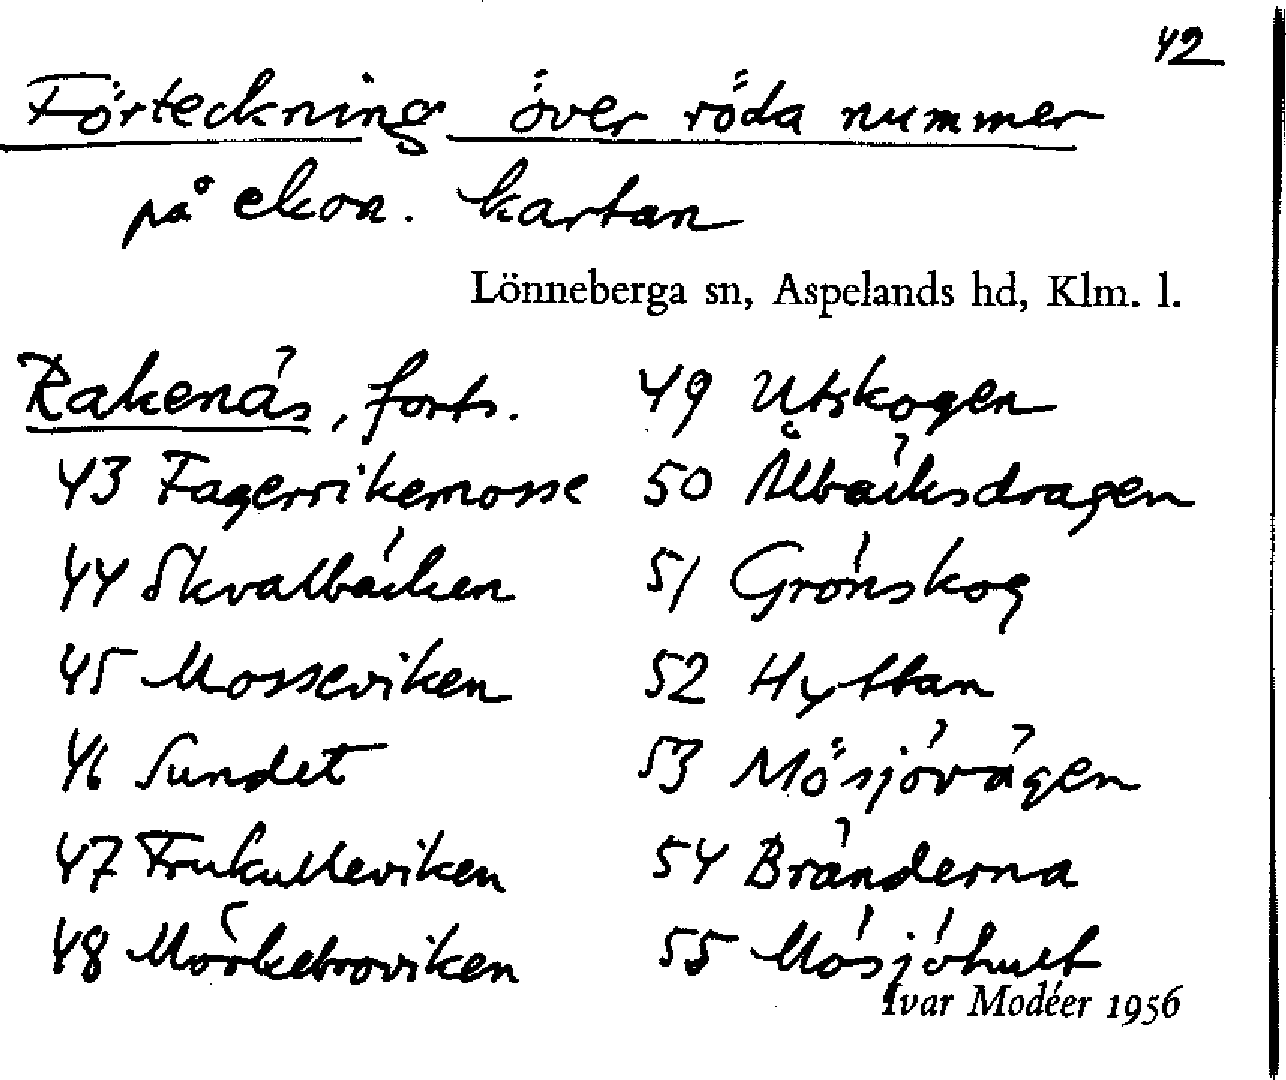 42
Förteckning över röda nummer
på ekon. kartan
Lönneberga sn, Aspelands hd, Klm. l.
Rakenäs, forts.
43 Fagerrikemosse
44 Skvalbäcken
45 Mosseviken
46 Sundet
47 Frukulleviken
48 Mörkebroviken
49 Utskogen
50 Ålbäcksdragen
51 Grönskog
52 Hyttan
53 Mösjövägen
54 Bränderna
55 Mösjöhult
Ivar Modéer 1956